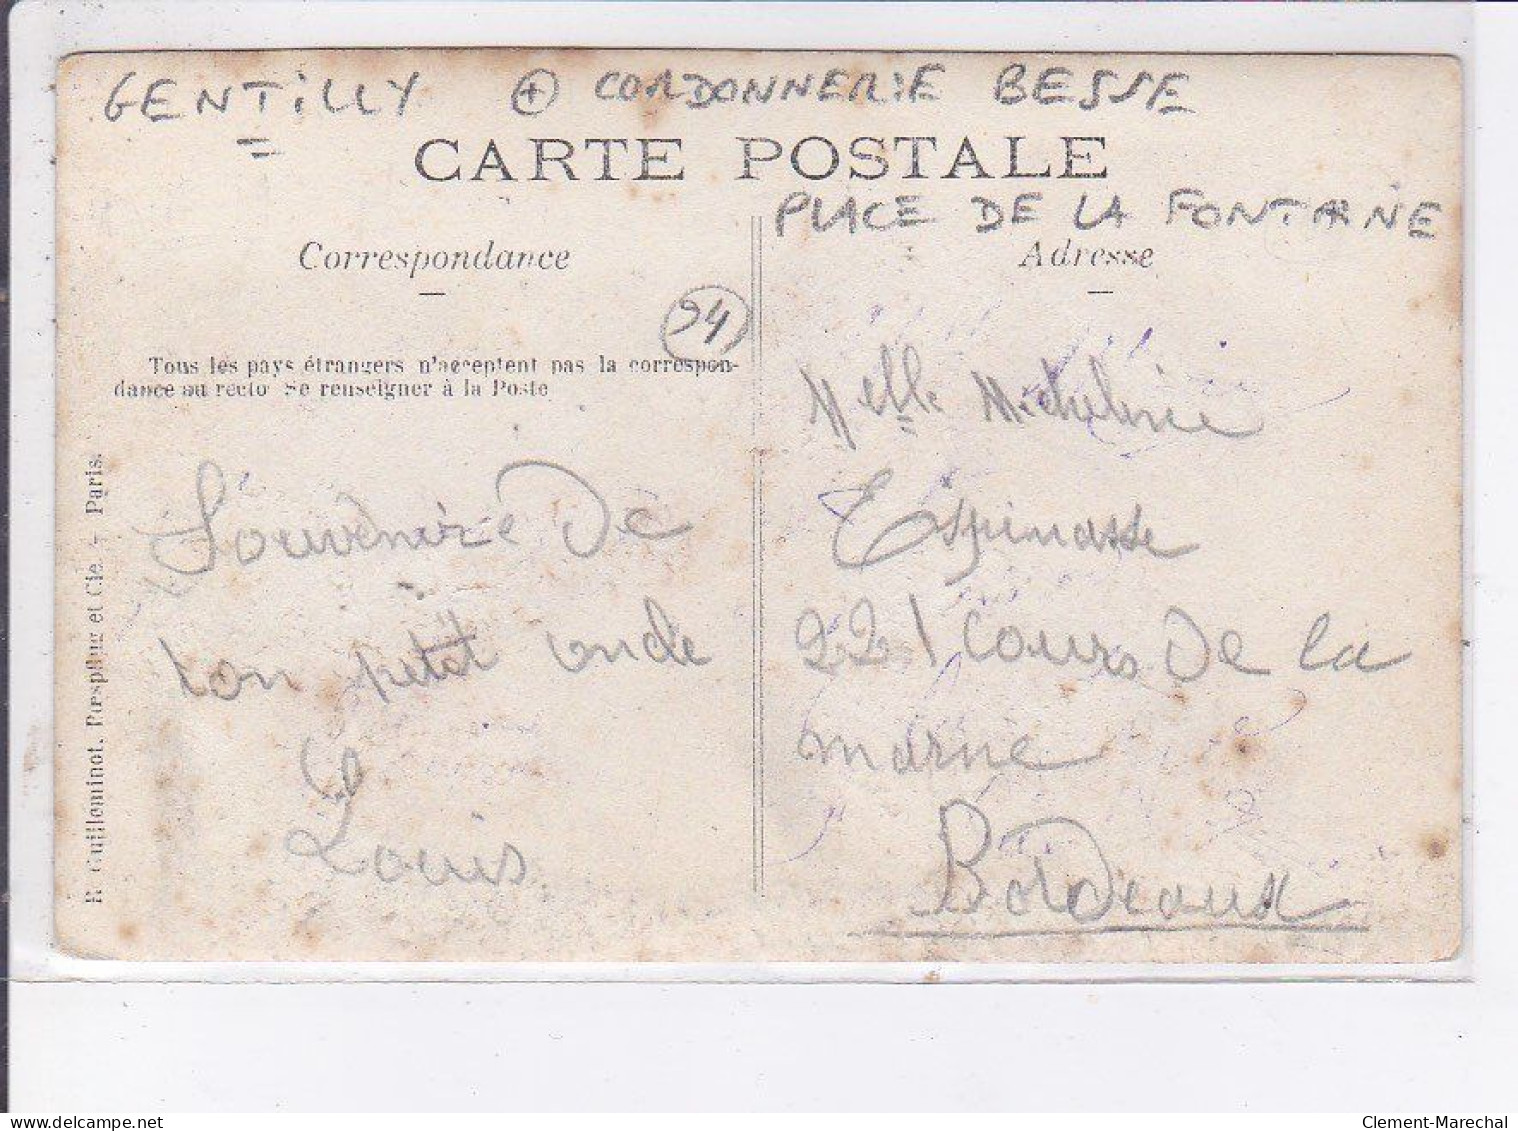 GENTILLY + CORDONNERIE BESSE
CARTE POSTALE
PLACE DE LA FONTAINE
Correspondance
Adresse
94
Tous les pays étrangers n'acceptent pas la correspon-
dance au recto Se renseigner à la Poste
R. Guilleminot, Bœspflug et Cie. - Paris.
Souvenire De
ton petit oncle
Louis
Melle Micheline
Espinasse
221 Cours De la
marne
Bordeaux
delcampe.net
Clement-Marechal